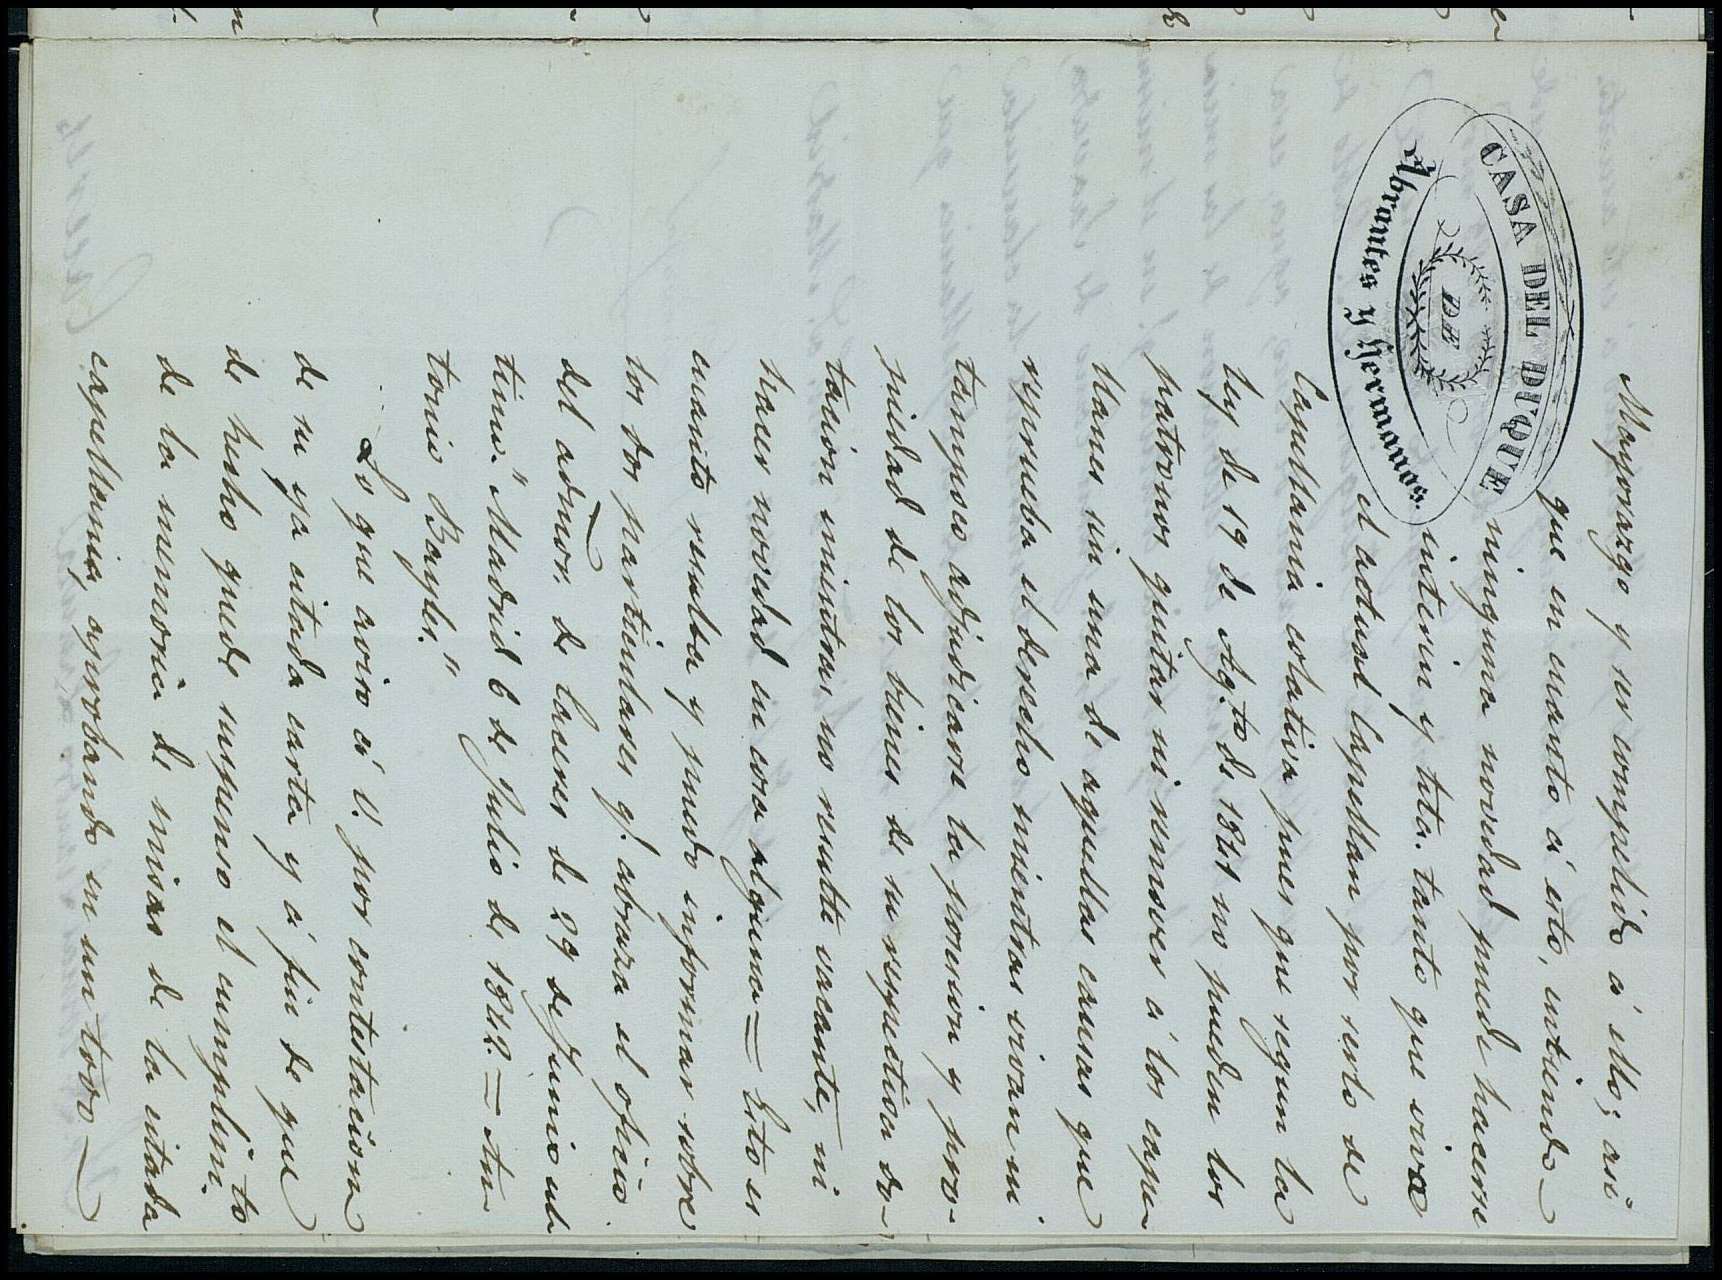 CASA DEL DUQUE
DE
Abrantes y Hermanos.
Mayorazgo y ser compelido á ello; asi
que en cuanto á esto, entiendo
ninguna novedad puede hacerse
interin y tita. tanto que viva
el actual Capellan por serlo de
Capellania colativa pues que segun la
ley de 19 de Ag.to de 1841 no pueden los
patronos quitar ni remover á los cape-
llanes sin una de aquellas causas que
reprueba el derecho mientras vivan ni
tampoco adjudicarse la posesion y pro-
piedad de los bienes de su respectiva do-
tacion mientras no resulte vacante, ni
hacer novedad en cosa alguna = Esto es
cuanto resulta y puedo informar sobre
los dos particulares q.e abraza el oficio
del admor. de Caceres de 29 de Junio ul-
timo." Madrid 6 de Julio de 1842. = An-
tonio Bayler."
Lo que aviso á V. por contestacion
de su ya citada carta y á fin de que
de hecho quede suspenso el cumplim.to
de la memoria de misas de la citada
capellania, aprobando en un todo